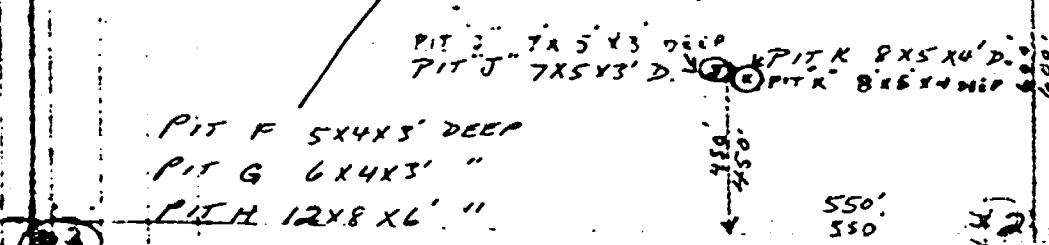 PIT "J" 7 x 5 x 3' DEEP
PIT "J" 7X5X3' D.
J
K
PIT K 8X5X4' D.
PIT "K" 8 x 5 x 4 DEEP
600'
PIT F 5X4X3' DEEP
PIT G 6X4X3' "
PIT H 12X8X6' "
450'
450'
550'
550
2
2